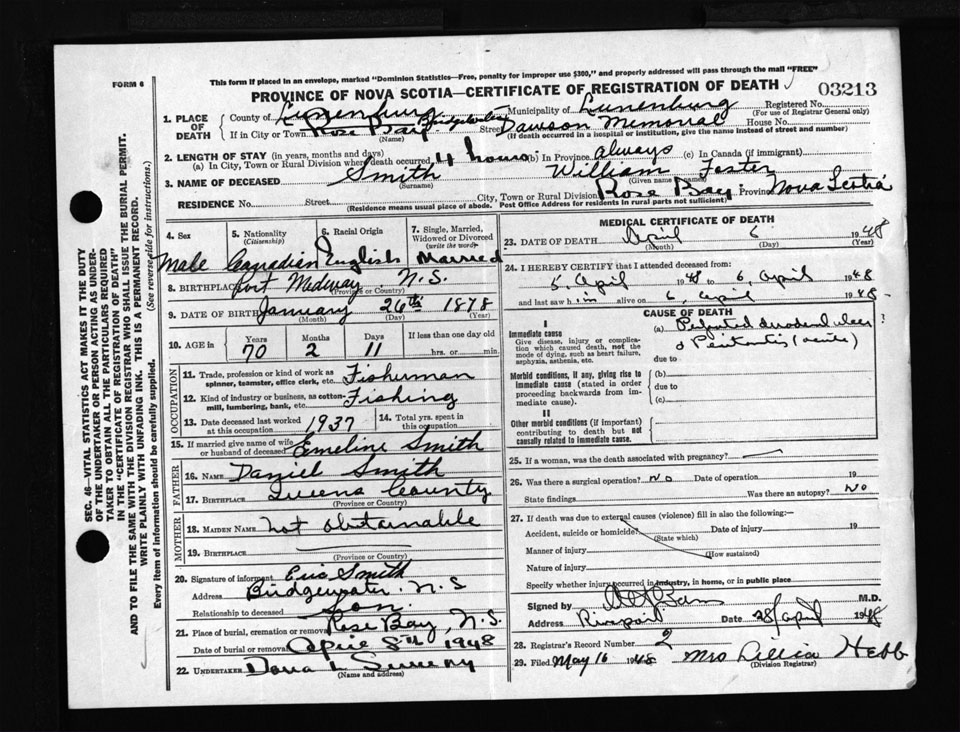 FORM 6
This form if placed in an envelope, marked "Dominion Statistics—Free, penalty for improper use $300," and properly addressed will pass through the mail "FREE"
PROVINCE OF NOVA SCOTIA—CERTIFICATE OF REGISTRATION OF DEATH
03213
1. PLACE OF DEATH
County of Lunenburg Municipality of Lunenburg Registered No.
(For use of Registrar General only)
If in City or Town Rose Bay Bridgewater Street Dawson Memorial House No.
(Name) (If death occurred in a hospital or institution, give the name instead of street and number)
2. LENGTH OF STAY (in years, months and days)
(a) In City, Town or Rural Division where death occurred 4 hours (b) In Province always (c) In Canada (if immigrant)
3. NAME OF DECEASED Smith William Foster
(Surname) (Given name)
RESIDENCE No. Street City, Town or Rural Division Rose Bay Province Nova Scotia
(Residence means usual place of abode. Post Office Address for residents in rural parts not sufficient)
4. Sex 5. Nationality (Citizenship) 6. Racial Origin 7. Single, Married, Widowed or Divorced (write the word)
Male Canadian English Married
8. BIRTHPLACE Port Medway N.S.
(Province or Country)
9. DATE OF BIRTH January 26th 1878
(Month) (Day) (Year)
10. AGE in Years Months Days If less than one day old
70 2 11 hrs. or min.
OCCUPATION
11. Trade, profession or kind of work as spinner, teamster, office clerk, etc. Fisherman
12. Kind of industry or business, as cotton-mill, lumbering, bank, etc. Fishing
13. Date deceased last worked at this occupation 1937 14. Total yrs. spent in this occupation
15. If married give name of wife or husband of deceased Emeline Smith
FATHER
16. NAME Daniel Smith
17. BIRTHPLACE Queens County
(Province or Country)
MOTHER
18. MAIDEN NAME not obtainable
19. BIRTHPLACE
(Province or Country)
20. Signature of informant Eric Smith
Address Bridgewater. N.S
Relationship to deceased Son.
21. Place of burial, cremation or removal Rose Bay, N.S.
Date of burial or removal April 8th 1948
22. UNDERTAKER
(Name and address)
MEDICAL CERTIFICATE OF DEATH
23. DATE OF DEATH April 6 1948
(Month) (Day) (Year)
24. I HEREBY CERTIFY that I attended deceased from:
5, April 1948 to 6, April 1948
and last saw him alive on 6, April 1948
CAUSE OF DEATH
I
Immediate cause
Give disease, injury or complication which caused death, not the mode of dying, such as heart failure, asphyxia, asthenia, etc.
(a) Perforated duodenal ulcer
& Peritonitis (acute)
due to
Morbid conditions, if any, giving rise to immediate cause (stated in order proceeding backwards from immediate cause).
(b)
due to
(c)
II
Other morbid conditions (if important) contributing to death but not causally related to immediate cause.
25. If a woman, was the death associated with pregnancy?
26. Was there a surgical operation? No Date of operation 19
State findings Was there an autopsy? No
27. If death was due to external causes (violence) fill in also the following:—
Accident, suicide or homicide? Date of injury 19
(State which)
Manner of injury
(How sustained)
Nature of injury
Specify whether injury occurred in industry, in home, or in public place
Signed by M.D.
Address Riverport Date 28/April 1948
28. Registrar's Record Number 2
29. Filed May 16 1948 Mrs Lillia Hebb
(Division Registrar)
SEC. 46—VITAL STATISTICS ACT MAKES IT THE DUTY
OF THE UNDERTAKER OR PERSON ACTING AS UNDER-
TAKER TO OBTAIN ALL THE PARTICULARS REQUIRED
IN THE "CERTIFICATE OF REGISTRATION OF DEATH"
AND TO FILE THE SAME WITH THE DIVISION REGISTRAR WHO SHALL ISSUE THE BURIAL PERMIT.
WRITE PLAINLY WITH UNFADING INK. THIS IS A PERMANENT RECORD.
Every item of information should be carefully supplied. (See reverse side for instructions.)